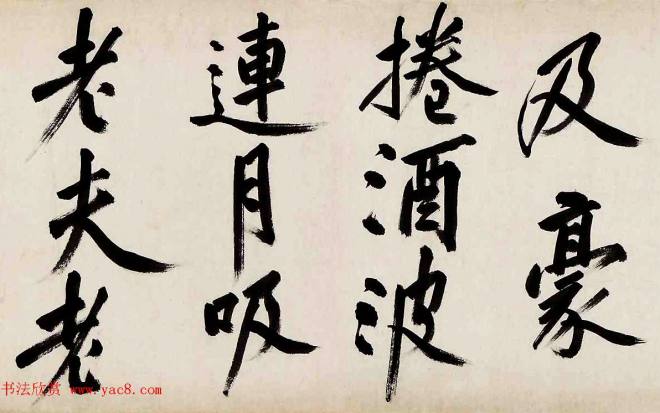 及豪
捲酒波
連月吸
老夫老
书法欣赏 www.yac8.com